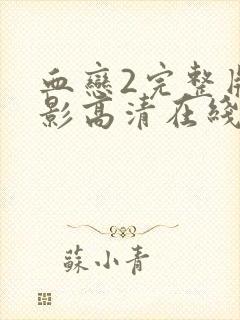 血戀2完整
影高清在綫
蘇小青